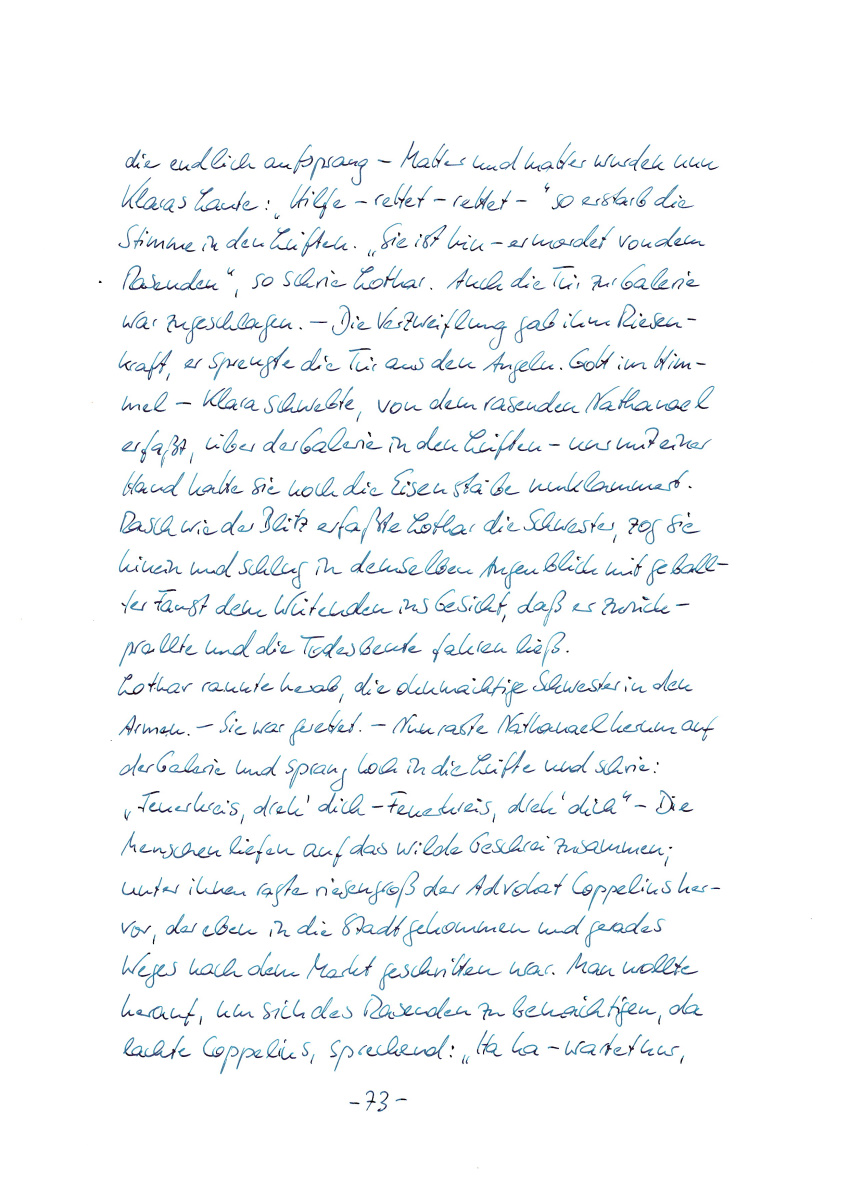 die endlich aufsprang – Matter und matter wurden nun
Klaras Laute: „Hilfe – rettet – rettet – “ so erstarb die
Stimme in den Lüften. „Sie ist hin – ermordet von dem
Rasenden“, so schrie Lothar. Auch die Tür zur Galerie
war zugeschlagen. – Die Verzweiflung gab ihm Riesen-
kraft, er sprengte die Tür aus den Angeln. Gott im Him-
mel – Klara schwebte, von dem rasenden Nathanael
erfaßt, über der Galerie in den Lüften – nur mit einer
Hand hatte sie noch die Eisenstäbe umklammert.
Rasch wie der Blitz erfaßte Lothar die Schwester, zog sie
hinein und schlug in demselben Augenblick mit geball-
ter Faust dem Wütenden ins Gesicht, daß er zurück-
prallte und die Todesbeute fahren ließ.
Lothar rannte herab, die ohnmächtige Schwester in den
Armen. – Sie war gerettet. – Nun raste Nathanael herum auf
der Galerie und sprang hoch in die Lüfte und schrie:
„Feuerkreis, dreh' dich – Feuerkreis, dreh' dich“ – Die
Menschen liefen auf das wilde Geschrei zusammen;
unter ihnen ragte riesengroß der Advokat Coppelius her-
vor, der eben in die Stadt gekommen und gerades
Weges nach dem Markt geschritten war. Man wollte
herauf, um sich des Rasenden zu bemächtigen, da
lachte Coppelius, sprechend: „Ha ha – wartet nur,
– 73 –